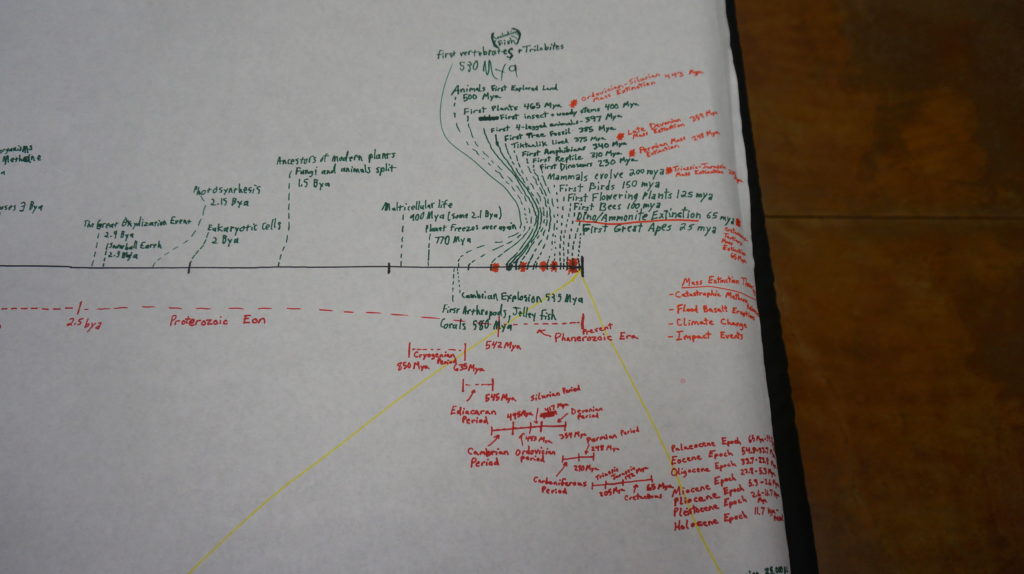 Fish
First vertebrates + Trilobites
530 Mya
Animals First Explored Land
500 Mya
First Plants 465 Mya
Ordovician-Silurian 443 Mya
Mass Extinction
First insect + woody stems 400 Mya
First 4-legged animals - 397 Mya
First Tree Fossil 385 Mya
Late Devonian 359 Mya
Mass Extinction
Tiktaalik lived 375 Mya
First Amphibians 340 Mya
Permian Mass 248 Mya
Extinction
First Reptile 310 Mya
First Dinosaurs 230 Mya
Mammals evolve 200 mya
Triassic-Jurassic
Mass Extinction
First Birds 150 mya
First Flowering Plants 125 mya
First Bees 100 mya
Dino/Ammonite Extinction 65 mya
First Great Apes 25 mya
Cretaceous
Tertiary
Mass
Extinction
65 Mya
Methane
3 Bya
The Great Oxydization Event
2.4 Bya
Snowball Earth
2.3 Bya
Photosynthesis
2.15 Bya
Eukaryotic Cells
2 Bya
Ancestors of modern plants
Fungi and animals split
1.5 Bya
Multicellular life
900 Mya (some 2.1 Bya)
Planet freezes over again
770 Mya
Cambrian Explosion 535 Mya
First Arthropods, Jelley fish
Corals 580 Mya
2.5 bya
Proterozoic Eon
542 Mya
Present
Phanerozoic Era
Mass Extinction
- Catastrophic
- Flood Basalt
- Climate Change
- Impact Events
Cryogenian
Period
850 Mya
635 Mya
Ediacaran
Period
545 Mya
Silurian Period
495 Mya
417 Mya
Devonian
Period
443 Mya
354 Mya
Cambrian
Period
Ordovician
Period
Permian Period
248 Mya
290 Mya
Carboniferous
Period
Triassic
Jurassic
205 Mya
65 Mya
Cretaceous
Palaeocene Epoch
Eocene Epoch
Oligocene Epoch
Miocene Epoch
Pliocene Epoch
Pleistocene Epoch
Holocene Epoch